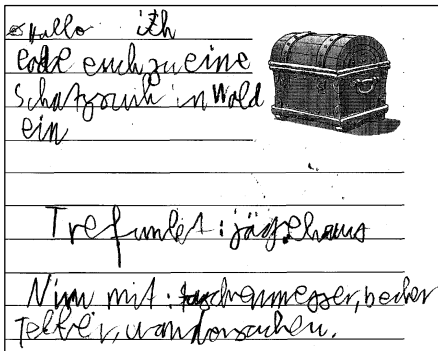 Hallo ich
lode euch zu eine
Schatzsuh in Wold
ein
Trefunket : jägehaus
Nim mit : taschenmesser, becher
Teller, wandersachen.